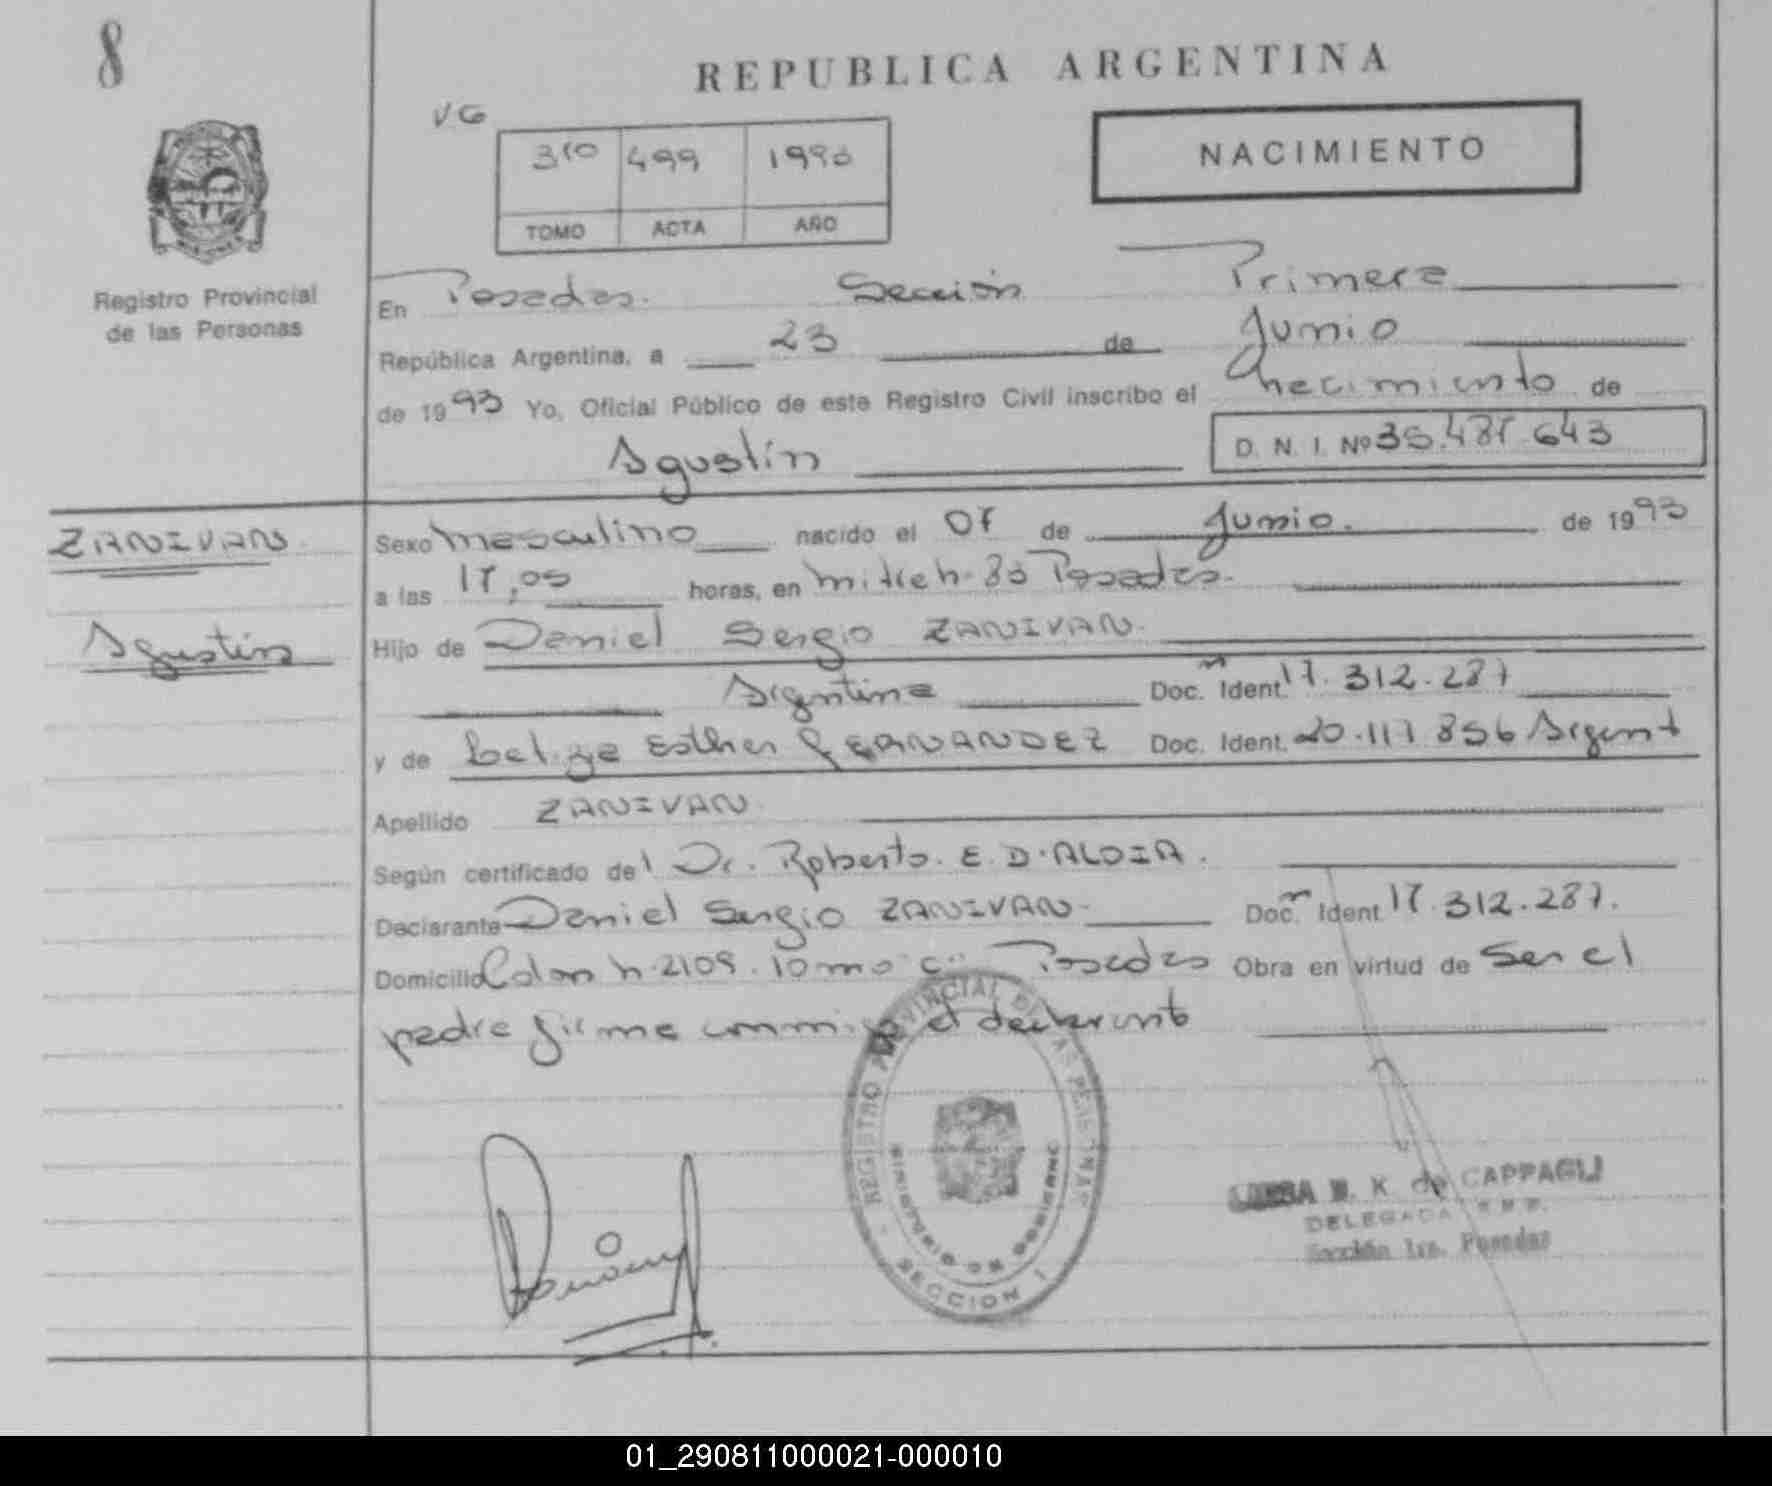 8
REPUBLICA ARGENTINA
VG
499 1993
TOMO ACTA AÑO
NACIMIENTO
Registro Provincial
de las Personas
En Posadas. Sección Primera
República Argentina, a 23 de Junio
de 1993 Yo, Oficial Público de este Registro Civil inscribo el Nacimiento de
Agustín
D. N. I. Nº
ZANIVAN
Agustín
Sexo Masculino nacido el 07 de Junio. de 1993
a las 17,05 horas, en Posadas.
Hijo de Daniel Sergio ZANIVAN.
Argentina Doc. Ident. 17.312.287
y de Esther FERNANDEZ Doc. Ident. 20.117.856 Argent
Apellido ZANIVAN
Según certificado del Dr. Roberto. E. D'ALOIA.
Declarante Daniel Sergio ZANIVAN Doc. Ident 17.312.287.
Domicilio Colon n. 2109. Posadas Obra en virtud de Ser el
padre firma conmigo el declarante
REGISTRO PROVINCIAL DE LAS PERSONAS
MINISTERIO DE GOBIERNO
SECCION I
K. de CAPPAGLI
DELEGADA
Sección 1ra. Posadas
01_290811000021-000010